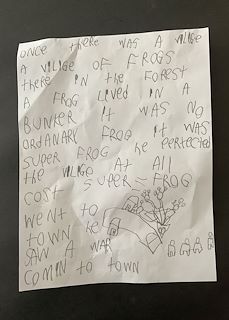 ONCE there WAS A VILIGE
A VILIGE OF FROGS
there IN the FOREST
A FROG LIVED IN A
BUNKER It WAS NO
ORDANARY FROG It WAS
SUPER FROG he PERtECtED
the VILIGE At All
COSt SUPER-FROG
WENT TO
tOWN he
SAW A WAR
COMIN to tOWN